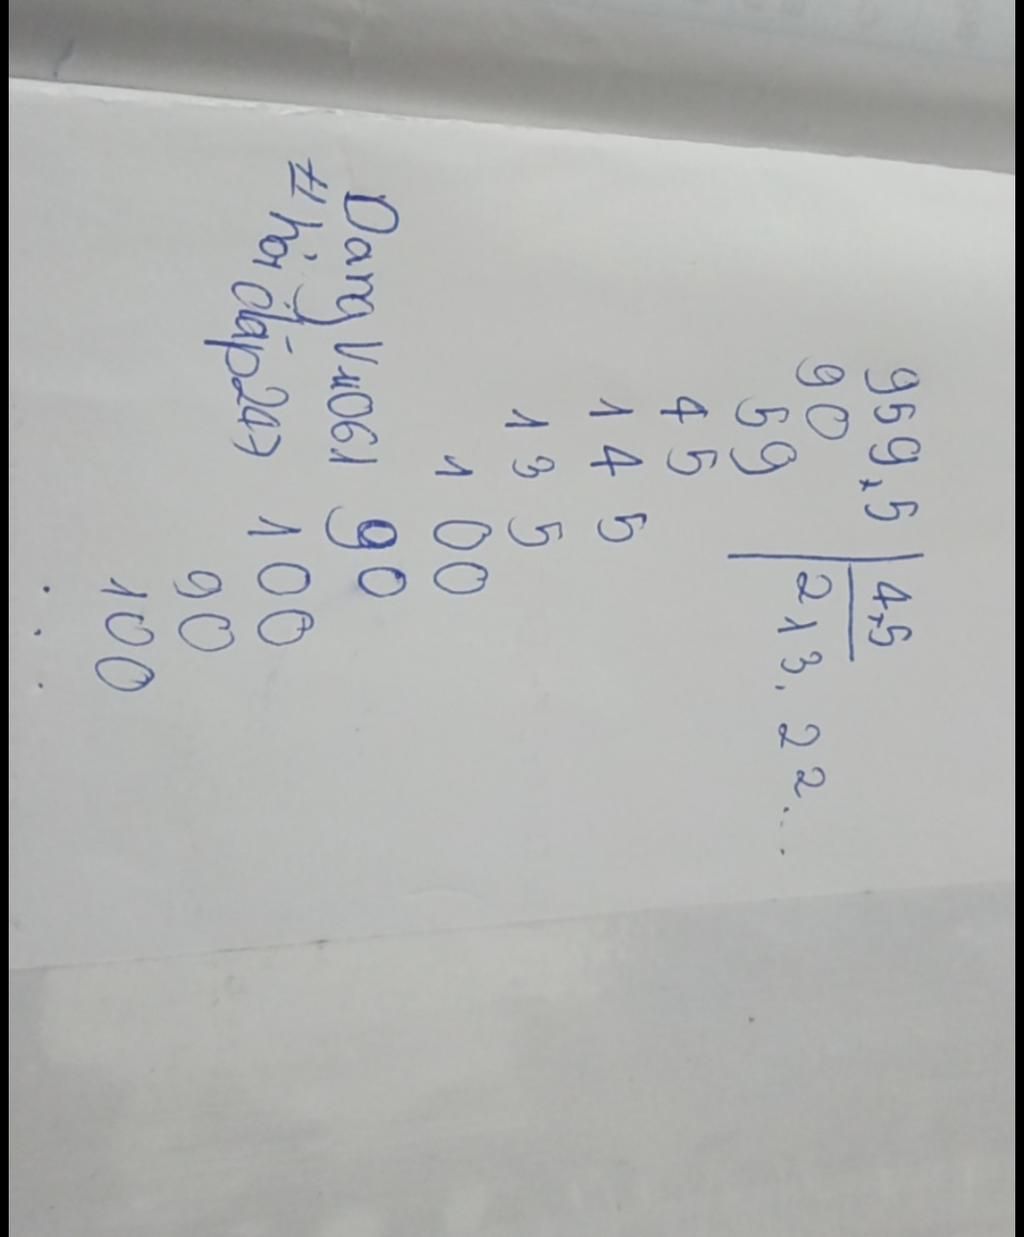 959,5 4,5
90 213,22...
59
45
145
135
100
90
100
90
100
...
Dang Vu1061
# hỏi đáp 247